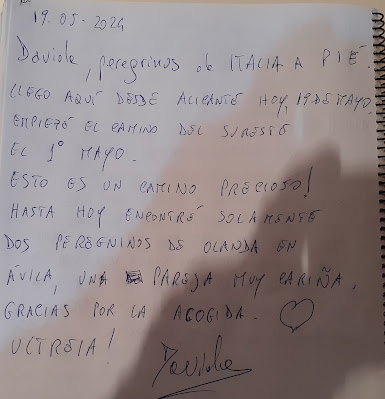 19.05-2024
Davide, peregrinos de ITALIA A PIÉ.
LLEGO AQUÍ DESDE ALICANTE HOY, 19 DE MAYO.
EMPIEZÉ EL CAMINO DEL SURESTE
EL 1º MAYO.
ESTO ES UN CAMINO PRECIOSO!
HASTA HOY ENCONTRÉ SOLAMENTE
DOS PEREGNINOS DE OLANDA EN
ÁVILA, UNA PAREJA MUY CARIÑA.
GRACIAS POR LA ACOGIDA. ♡
ULTREIA!
Davide